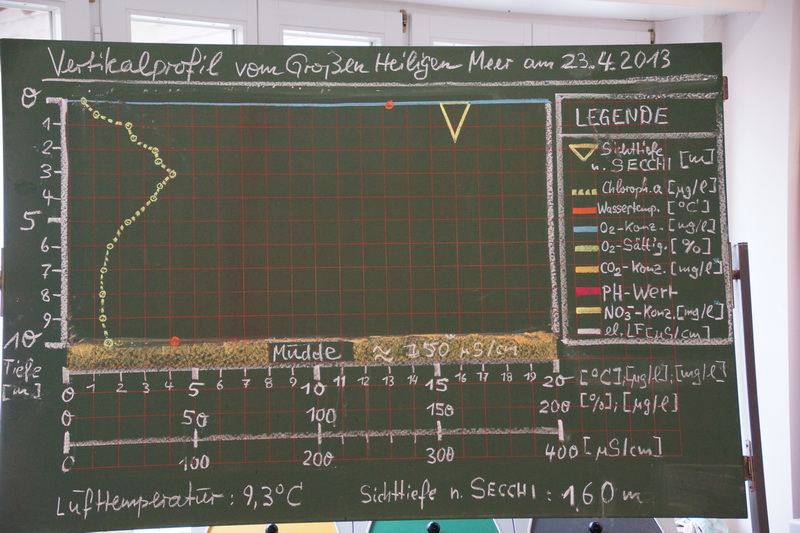 Vertikalprofil vom Großen Heiligen Meer am 23.4.2013
0
1
2
3
4
5
6
7
8
9
10
Tiefe
[m]
LEGENDE
Sichttiefe
n. SECCHI [m]
Chloroph.a [µg/l]
Wassertemp. [°C]
O₂-Konz. [mg/l]
O₂-Sättig. [%]
CO₂-Konz. [mg/l]
PH-Wert
NO₃⁻-Konz. [mg/l]
el. LF [µS/cm]
Mudde ≈ 150 µS/cm
0 1 2 3 4 5 6 7 8 9 10 11 12 13 14 15 16 17 18 19 20 [°C]; [µg/l]; [mg/l]
0 50 100 150 200 [%]; [µg/l]
0 100 200 300 400 [µS/cm]
Lufttemperatur: 9,3°C Sichttiefe n. SECCHI: 1,60 m